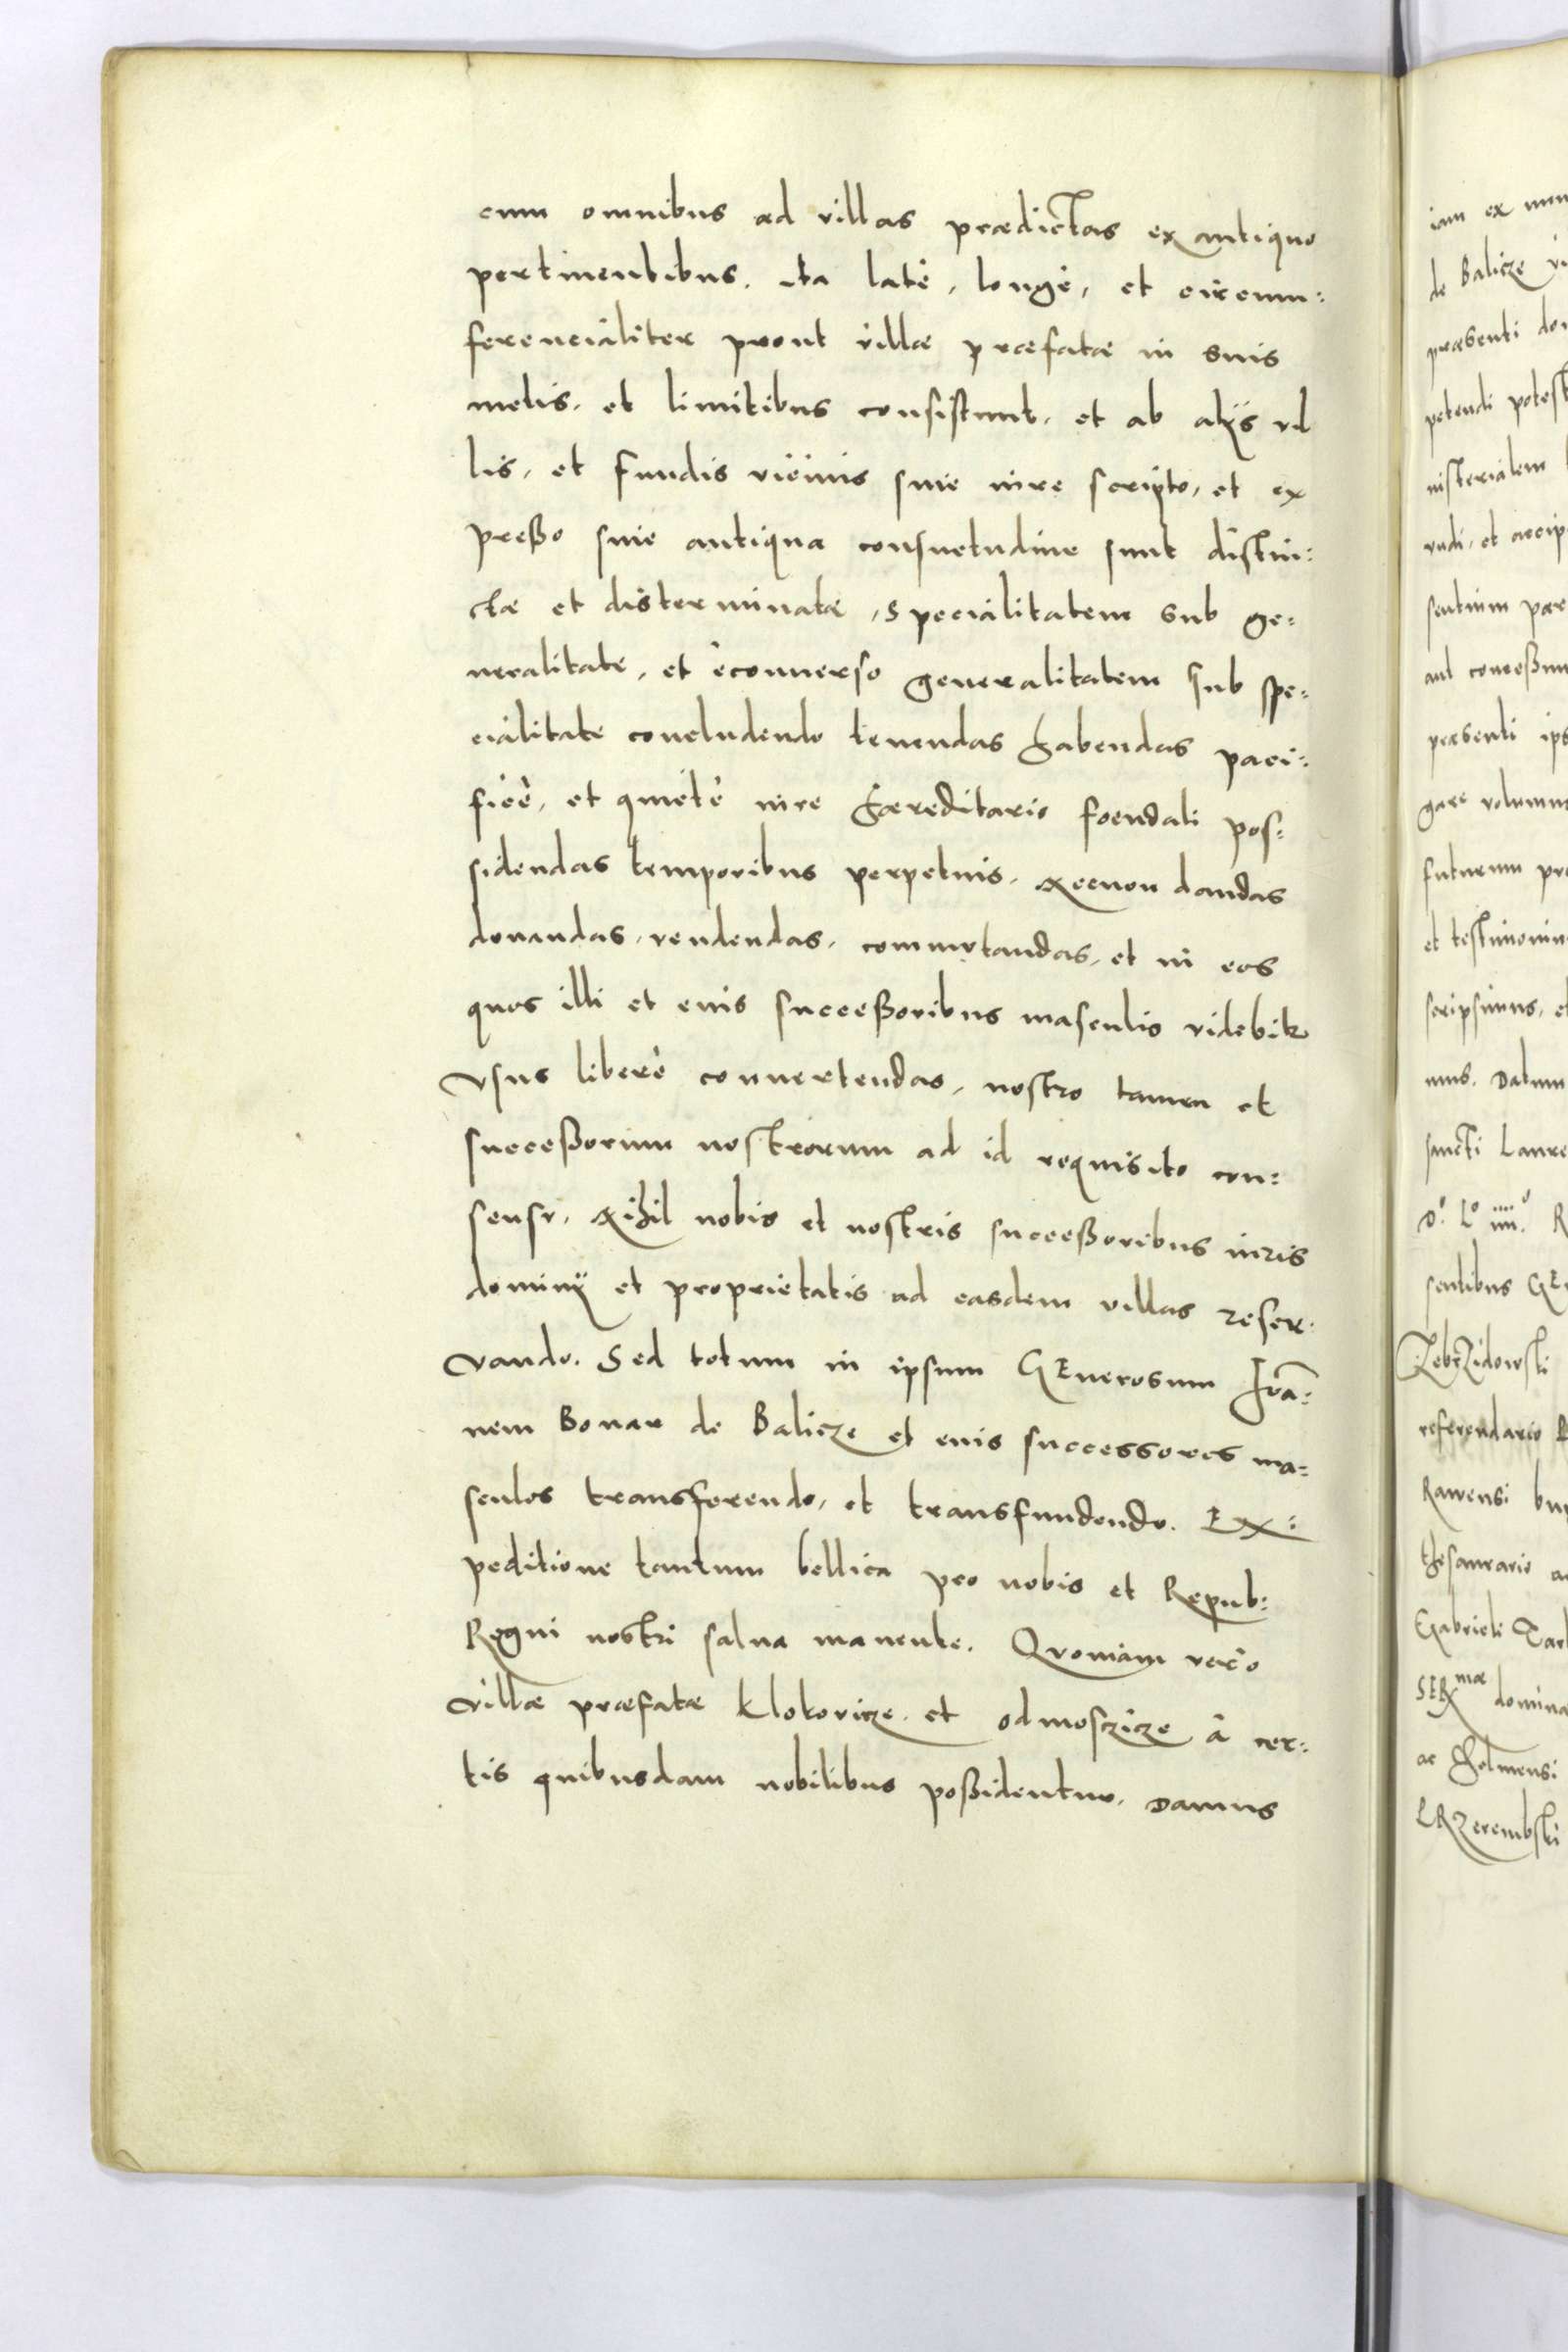 cum omnibus ad villas prædictas ex antiquo
pertinentibus. ita latè, longè, et circum:
ferencialiter prout villæ præfatæ in suis
metis, et limitibus consistunt, et ab alijs vil
lis, et fundis vicinis siue iure scripto, et ex
presso siue antiqua consuetudine sunt distin:
ctæ et disterminatæ, Specialitatem sub ge:
neralitate, et èconuerso generalitatem sub spe:
cialitate concludendo tenendas habendas paci:
ficè, et quietè iure hæreditario foendali pos:
sidendas temporibus perpetuis. Necnon dandas
donandas, vendendas, commvtandas, et in eos
quos illi et eius successoribus masculis videbitur
Vsus liberè conuertendas, nostro tamen et
successorum nostrorum ad id requisito con:
sensv. Nihil nobis et nostris successoribus iuris
dominij et proprietatis ad easdem villas reser:
Vando. Sed totum in ipsum GEnerosum Ioã:
nem Bonar de Balicze et eius successores ma:
sculos transferendo, et transfundendo. Ex:
peditione tantum bellica pro nobis et Repub:
Regni nostri salua manente. Qvoniam verò
Villæ præfatæ klokovicze. et odmosczicze à cer:
tis quibusdam nobilibus possidentur. Damus
iam ex
de Balicze
præsenti
petendi
nisterialem
sentium
præsenti
gare volumus
futurum
et testimonium
scripsimus,
mus. Datum
sancti
sentibus
Zebrzidowski
referendario
Rawensi
thesaurario
Gabrieli
SERmæ
ac Chelmensi